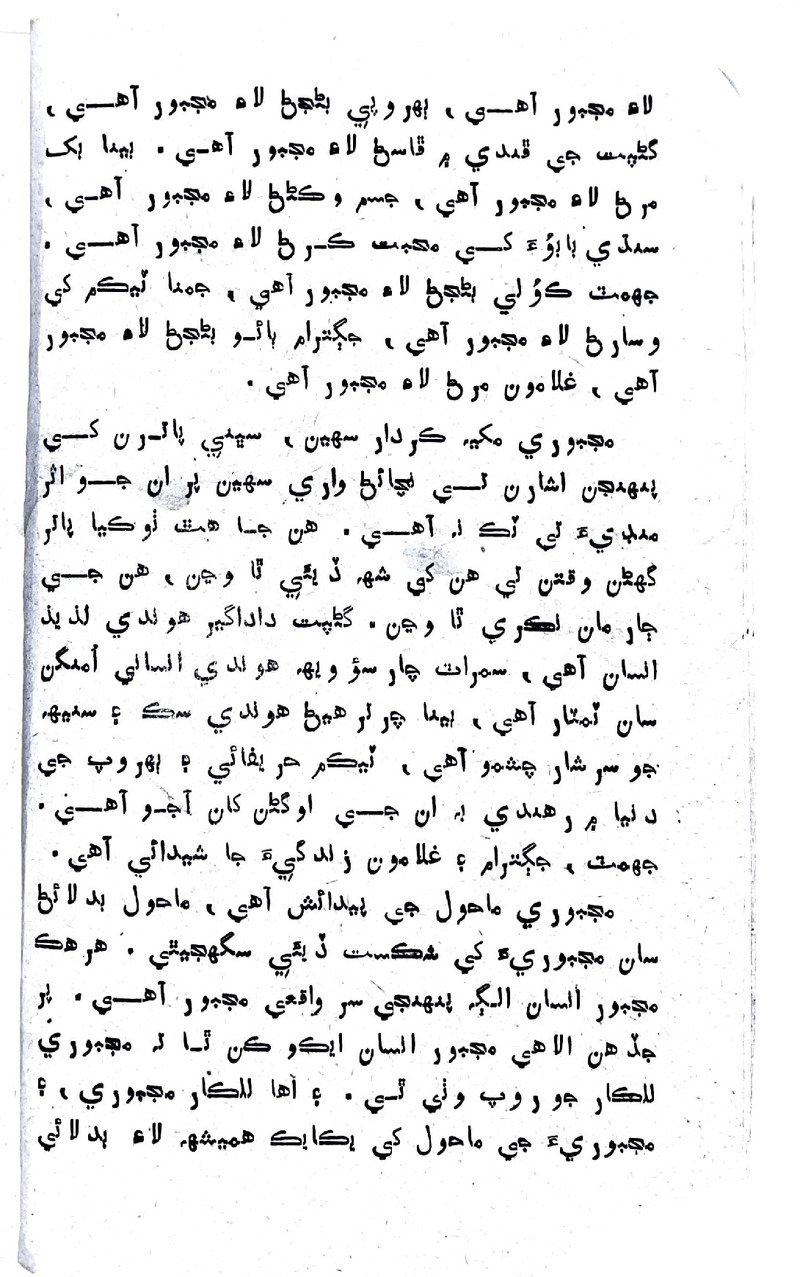 لاءِ مجبور آهـــي، بهروپي بڻجڻ لاءِ مجبور آهـــي،
گڻپت جي قندي ۾ ڦاسڻ لاءِ مجبور آهـي. بينا بک
مرڻ لاءِ مجبور آهي، جسم وڪڻڻ لاءِ مجبور آهـي،
سنڌي بابوءَ کـــي محبت ڪـرڻ لاءِ مجبور آهـــي.
جهمٽ ڪوُلي بڻجڻ لاءِ مجبور آهي، جمنا ٽيڪم کي
وسارڻ لاءِ مجبور آهي، جڳترام ٻائـو بڻجڻ لاءِ مجبور
آهي، غلامون مرڻ لاءِ مجبور آهي.
مجبوري مکيه ڪردار سهين، سڀني پاتـرن کـــي
پنهنجن اشارن تـــي نچائڻ واري سهين پر ان جـــو اثر
منڍيءَ تي ٽڪ نه آهـــي. هن جـا هٿ ٺوڪيا پاتر
گهڻن وقتن تي هن کي شهه ڏيئي ٿا وڃن، هن جـــي
ڄار مان نڪري ٿا وڃن. گڻپت داداگير هوندي لذيذ
انسان آهي، سمرات چار سؤ ويهه هوندي انساني اُمنگن
سان ٽمٽار آهي، بينا چرتر هيڻ هوندي سڪ ۽ سنيهه
جو سرشار چشمو آهي، ٽيڪم حريفائي ۽ بهروپ جي
دنيا ۾ رهندي به ان جـــي اوگڻن کان آجـو آهـــي.
جهمٽ، جڳترام ۽ غلامون زندگيءَ جا شيدائي آهي.
مجبوري ماحول جي پيدائش آهي، ماحول بدلائڻ
سان مجبوريءَ کي شڪست ڏيئي سگهجيٿي. هر هڪ
مجبور انسان الڳه پنهنجي سر واقعي مجبور آهـــي. پر
جڏهن الاهي مجبور انسان ايڪو ڪن ٿـا ته مجبوري
للڪار جو روپ وٺي ٿـي. ۽ اُها للڪار مجبوري، ۽
مجبوريءَ جي ماحول کي يڪايڪ هميشه لاءِ بدلائي